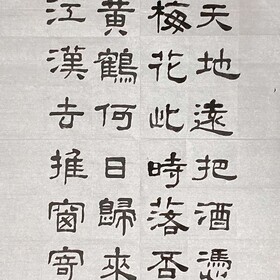 天地遠把酒憑
梅花此時落否
黃鶴何日歸來
江漢去推窗寄